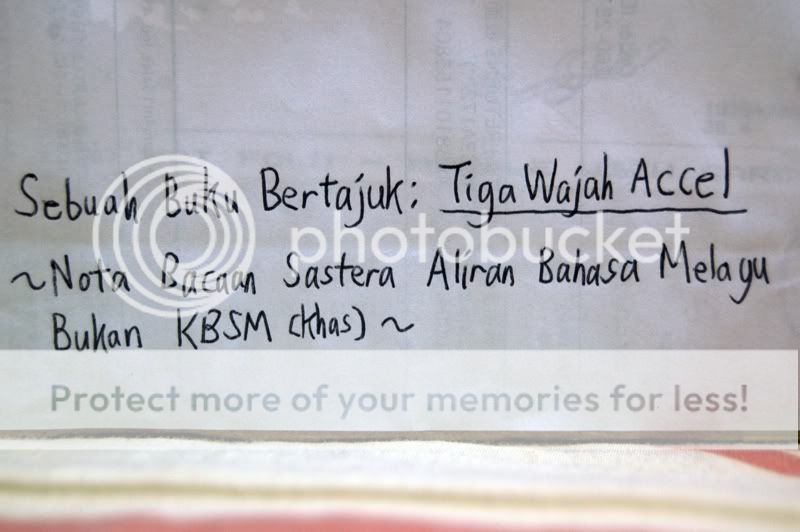 Sebuah Buku Bertajuk: Tiga Wajah Accel
photobucket
~Nota Bacaan Sastera Aliran Bahasa Melayu
Bukan KBSM (Khas) ~
Protect more of your memories for less!